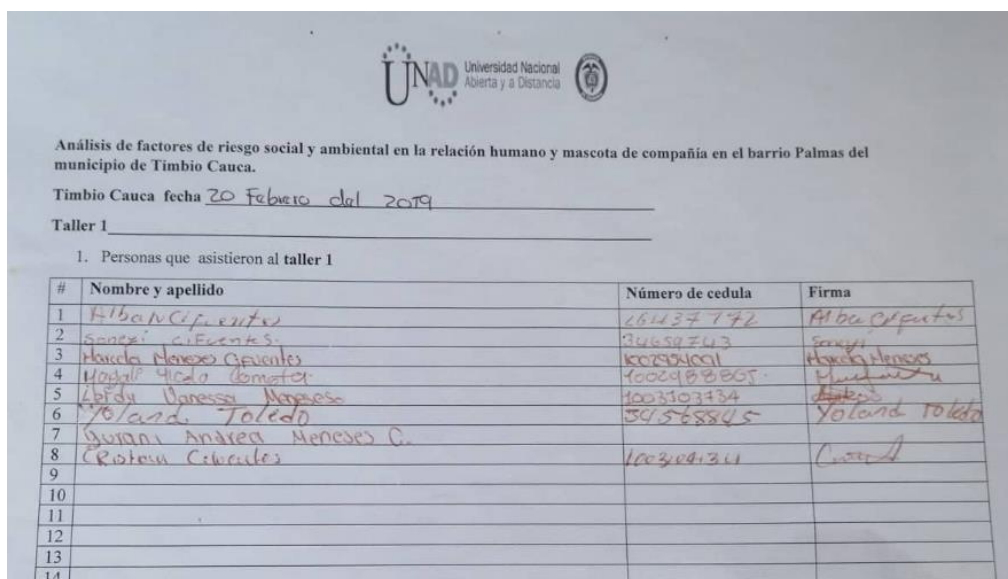 UNAD Universidad Nacional
Abierta y a Distancia
Análisis de factores de riesgo social y ambiental en la relación humano y mascota de compañía en el barrio Palmas del
municipio de Timbio Cauca.
Timbio Cauca fecha 20 Febrero del 2019
Taller 1
1. Personas que asistieron al taller 1
# Nombre y apellido Número de cedula Firma
1 Alba N Cifuentes Alba Cifuentes
2 Cifuentes. 34659743
3 Marcela Meneses Cifuentes Marcela Meneses
4
5 Vanessa Meneses 1003103734
6 Yoland Toledo 34568845 Yoland Toledo
7 Yurani Andrea Meneses C.
8 Cifuentes
9
10
11
12
13
14